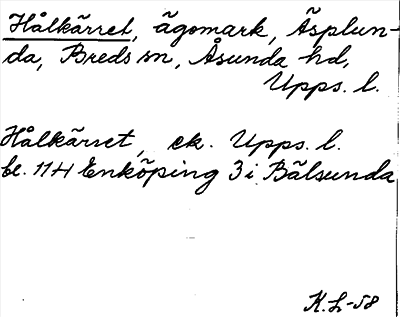 Hålkärret, ägomark, Äsplun-
da, Breds sn, Åsunda hd,
Upps. l.
Hålkärret, ek. Upps. l.
bl. 11H Enköping 3 i Bälsunda
K.L-58